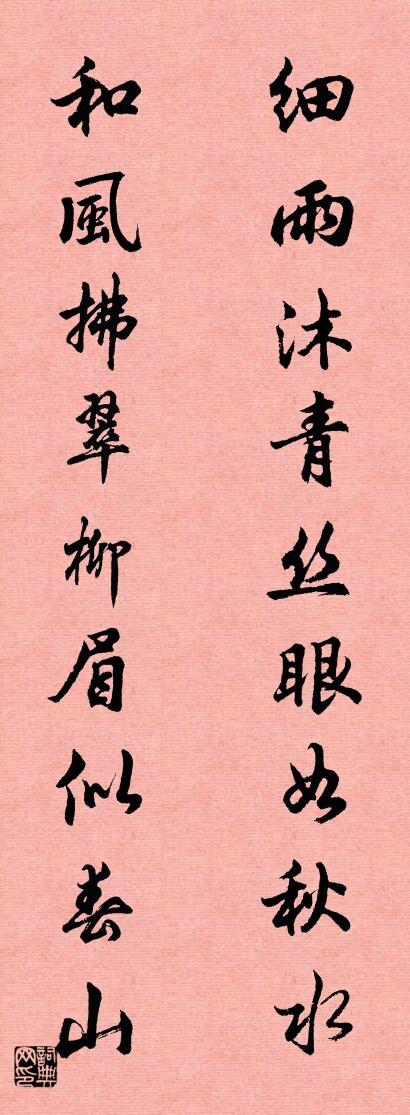 细雨沐青丝眼如秋水
和風拂翠柳眉似春山
詞典网印